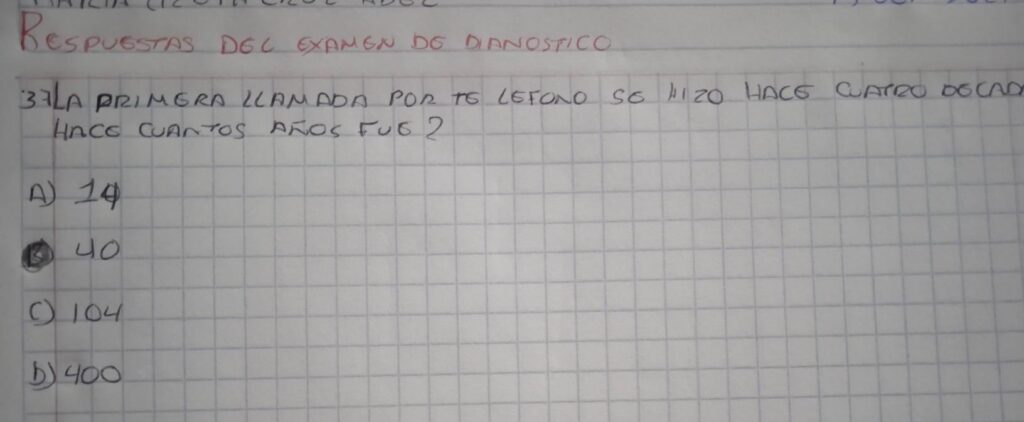 RESPUESTAS DEL EXAMEN DE DIANOSTICO
37LA PRIMERA LLAMADA POR TE LEFONO SE HIZO HACE CUATRO DECAD
HACE CUANTOS AÑOS FUE?
A) 14
40
C) 104
D) 400